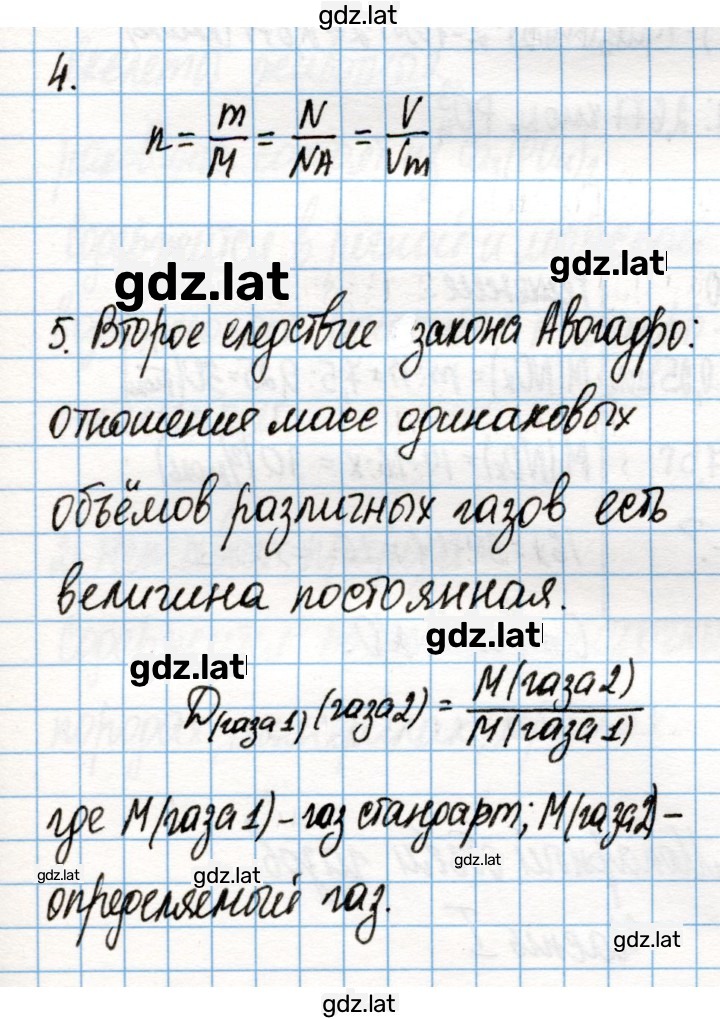 gdz.lat
4.
n = m/M = N/NA = V/Vm
gdz.lat
gdz.lat
5. Второе следствие закона Авогадро:
отношение масс одинаковых
объёмов различных газов есть
величина постоянная.
gdz.lat
gdz.lat
D(газа1) (газа2) = M(газа2)/M(газа1)
где M(газа1) – газ стандарт; M(газа2) –
gdz.lat
gdz.lat
gdz.lat
определяемый газ.
gdz.lat
gdz.lat